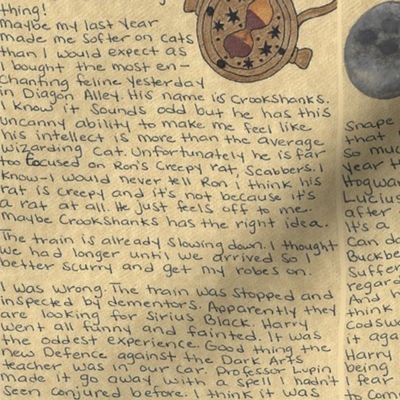 thing!
maybe my last year
made me softer on cats
than I would expect as
I bought the most en-
chanting feline yesterday
in Diagon Alley. His name is Crookshanks.
I know it sounds odd but he has this
uncanny ability to make me feel like
his intellect is more than the average
Wizarding Cat. Unfortunately he is far
too focused on Ron's creepy rat, Scabbers. I
know-I would never tell Ron I think his
rat is creepy and it's not because it's
a rat at all. He just feels off to me.
maybe Crookshanks has the right idea.
The train is already slowing down. I thought
we had longer until we arrived so I
better scurry and get my robes on.
I was wrong. The train was stopped and
inspected by dementors. Apparently they
are looking for Sirius Black. Harry
went all funny and fainted. It was
the oddest experience. Good thing the
new Defence against the Dark Arts
teacher was in our car. Professor Lupin
made it go away with a spell I hadn't
seen conjured before. I think it was
Snape
that
so much
year t
Hogwar
Lucius
after
It's a
Can do
Buckbe
Suffer
regard
And h
think
Codswa
it aga
Harry
being
I fear
to com